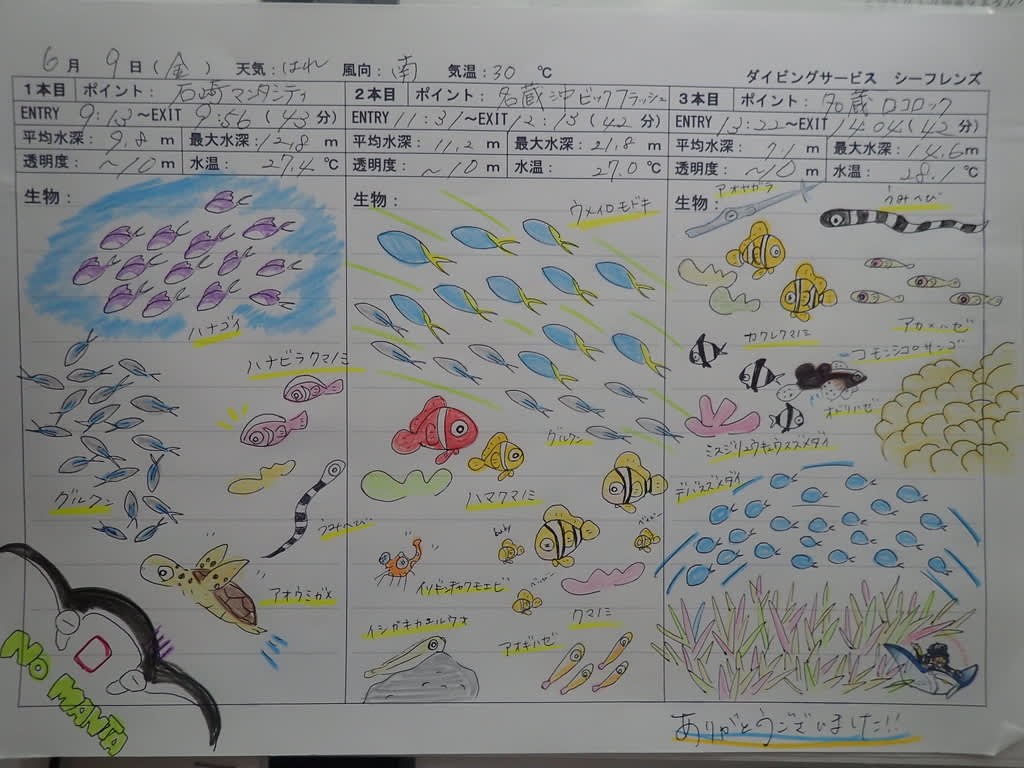 6月 9日(金) 天気:はれ 風向:南 気温:30 ℃
ダイビングサービス シーフレンズ
1本目 ポイント:石崎マンタシティ
ENTRY 9:13~EXIT 9:56(43分)
平均水深:9.8 m 最大水深:12.8 m
透明度:~10 m 水温:27.4 ℃
生物:
ハナゴイ
ハナビラクマノミ
グルクン
うみへび
アオウミガメ
NO MANTA
2本目 ポイント:名蔵沖ビックフラッシュ
ENTRY 11:31~EXIT 12:13(42分)
平均水深:11.2 m 最大水深:21.8 m
透明度:~10 m 水温:27.0 ℃
生物:
ウメイロモドキ
グルクン
ハマクマノミ
baby
ベイビー
イソギンチャクモエビ
ベイビー
クマノミ
イシガキカエルウオ
アオギハゼ
3本目 ポイント:名蔵ロコロック
ENTRY 13:22~EXIT 14:04(42分)
平均水深:7.1 m 最大水深:14.6 m
透明度:~10 m 水温:28.1 ℃
生物:
アオヤガラ
うみへび
アカメハゼ
カクレクマノミ
コモンシコロサンゴ
オドリハゼ
ミスジリュウキュウスズメダイ
デバスズメダイ
ありがとうございました!!